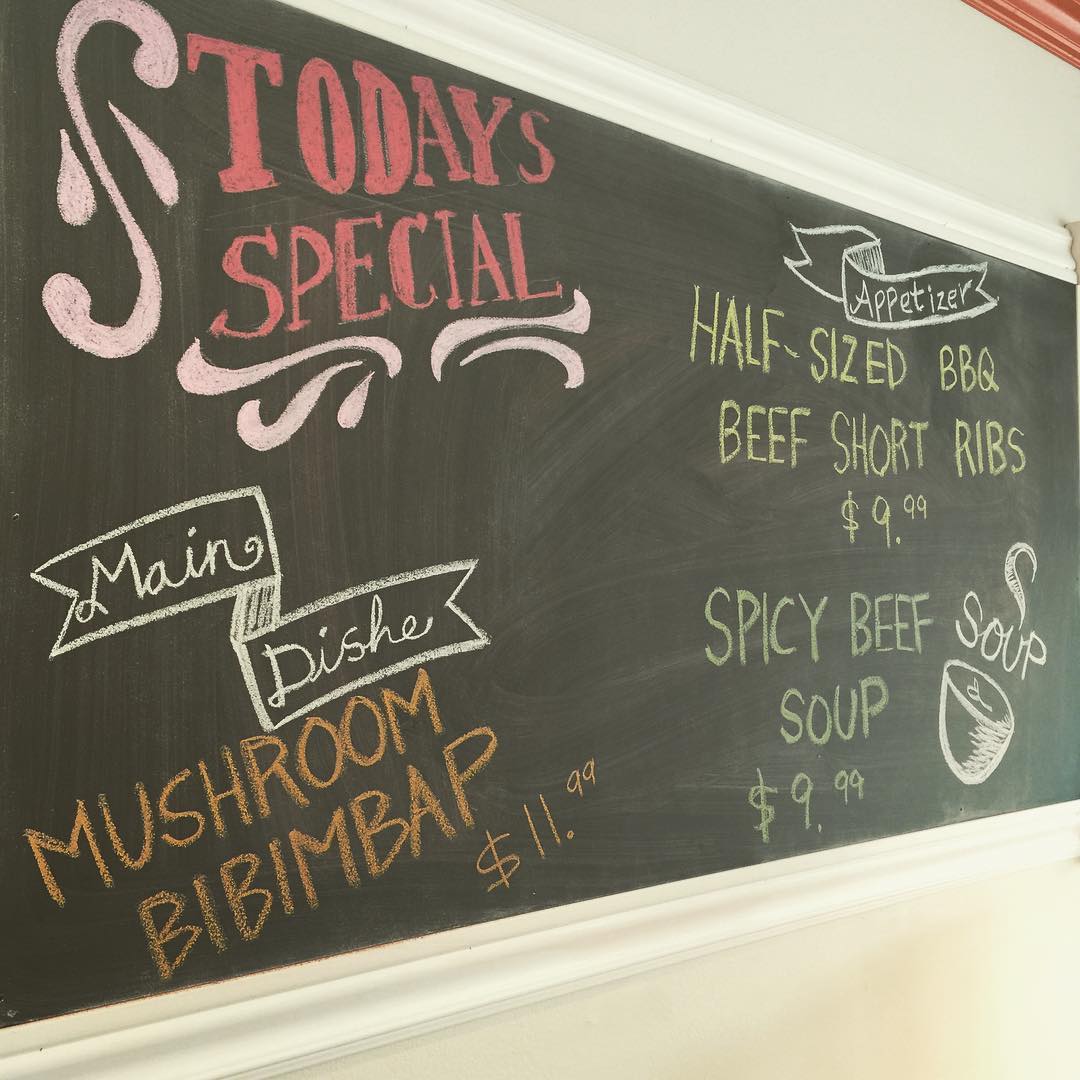 TODAYS
SPECIAL
Appetizer
HALF-SIZED BBQ
BEEF SHORT RIBS
$9.99
SPICY BEEF
SOUP
$9.99
SOUP
Main
Dishe
MUSHROOM
BIBIMBAP
$11.99